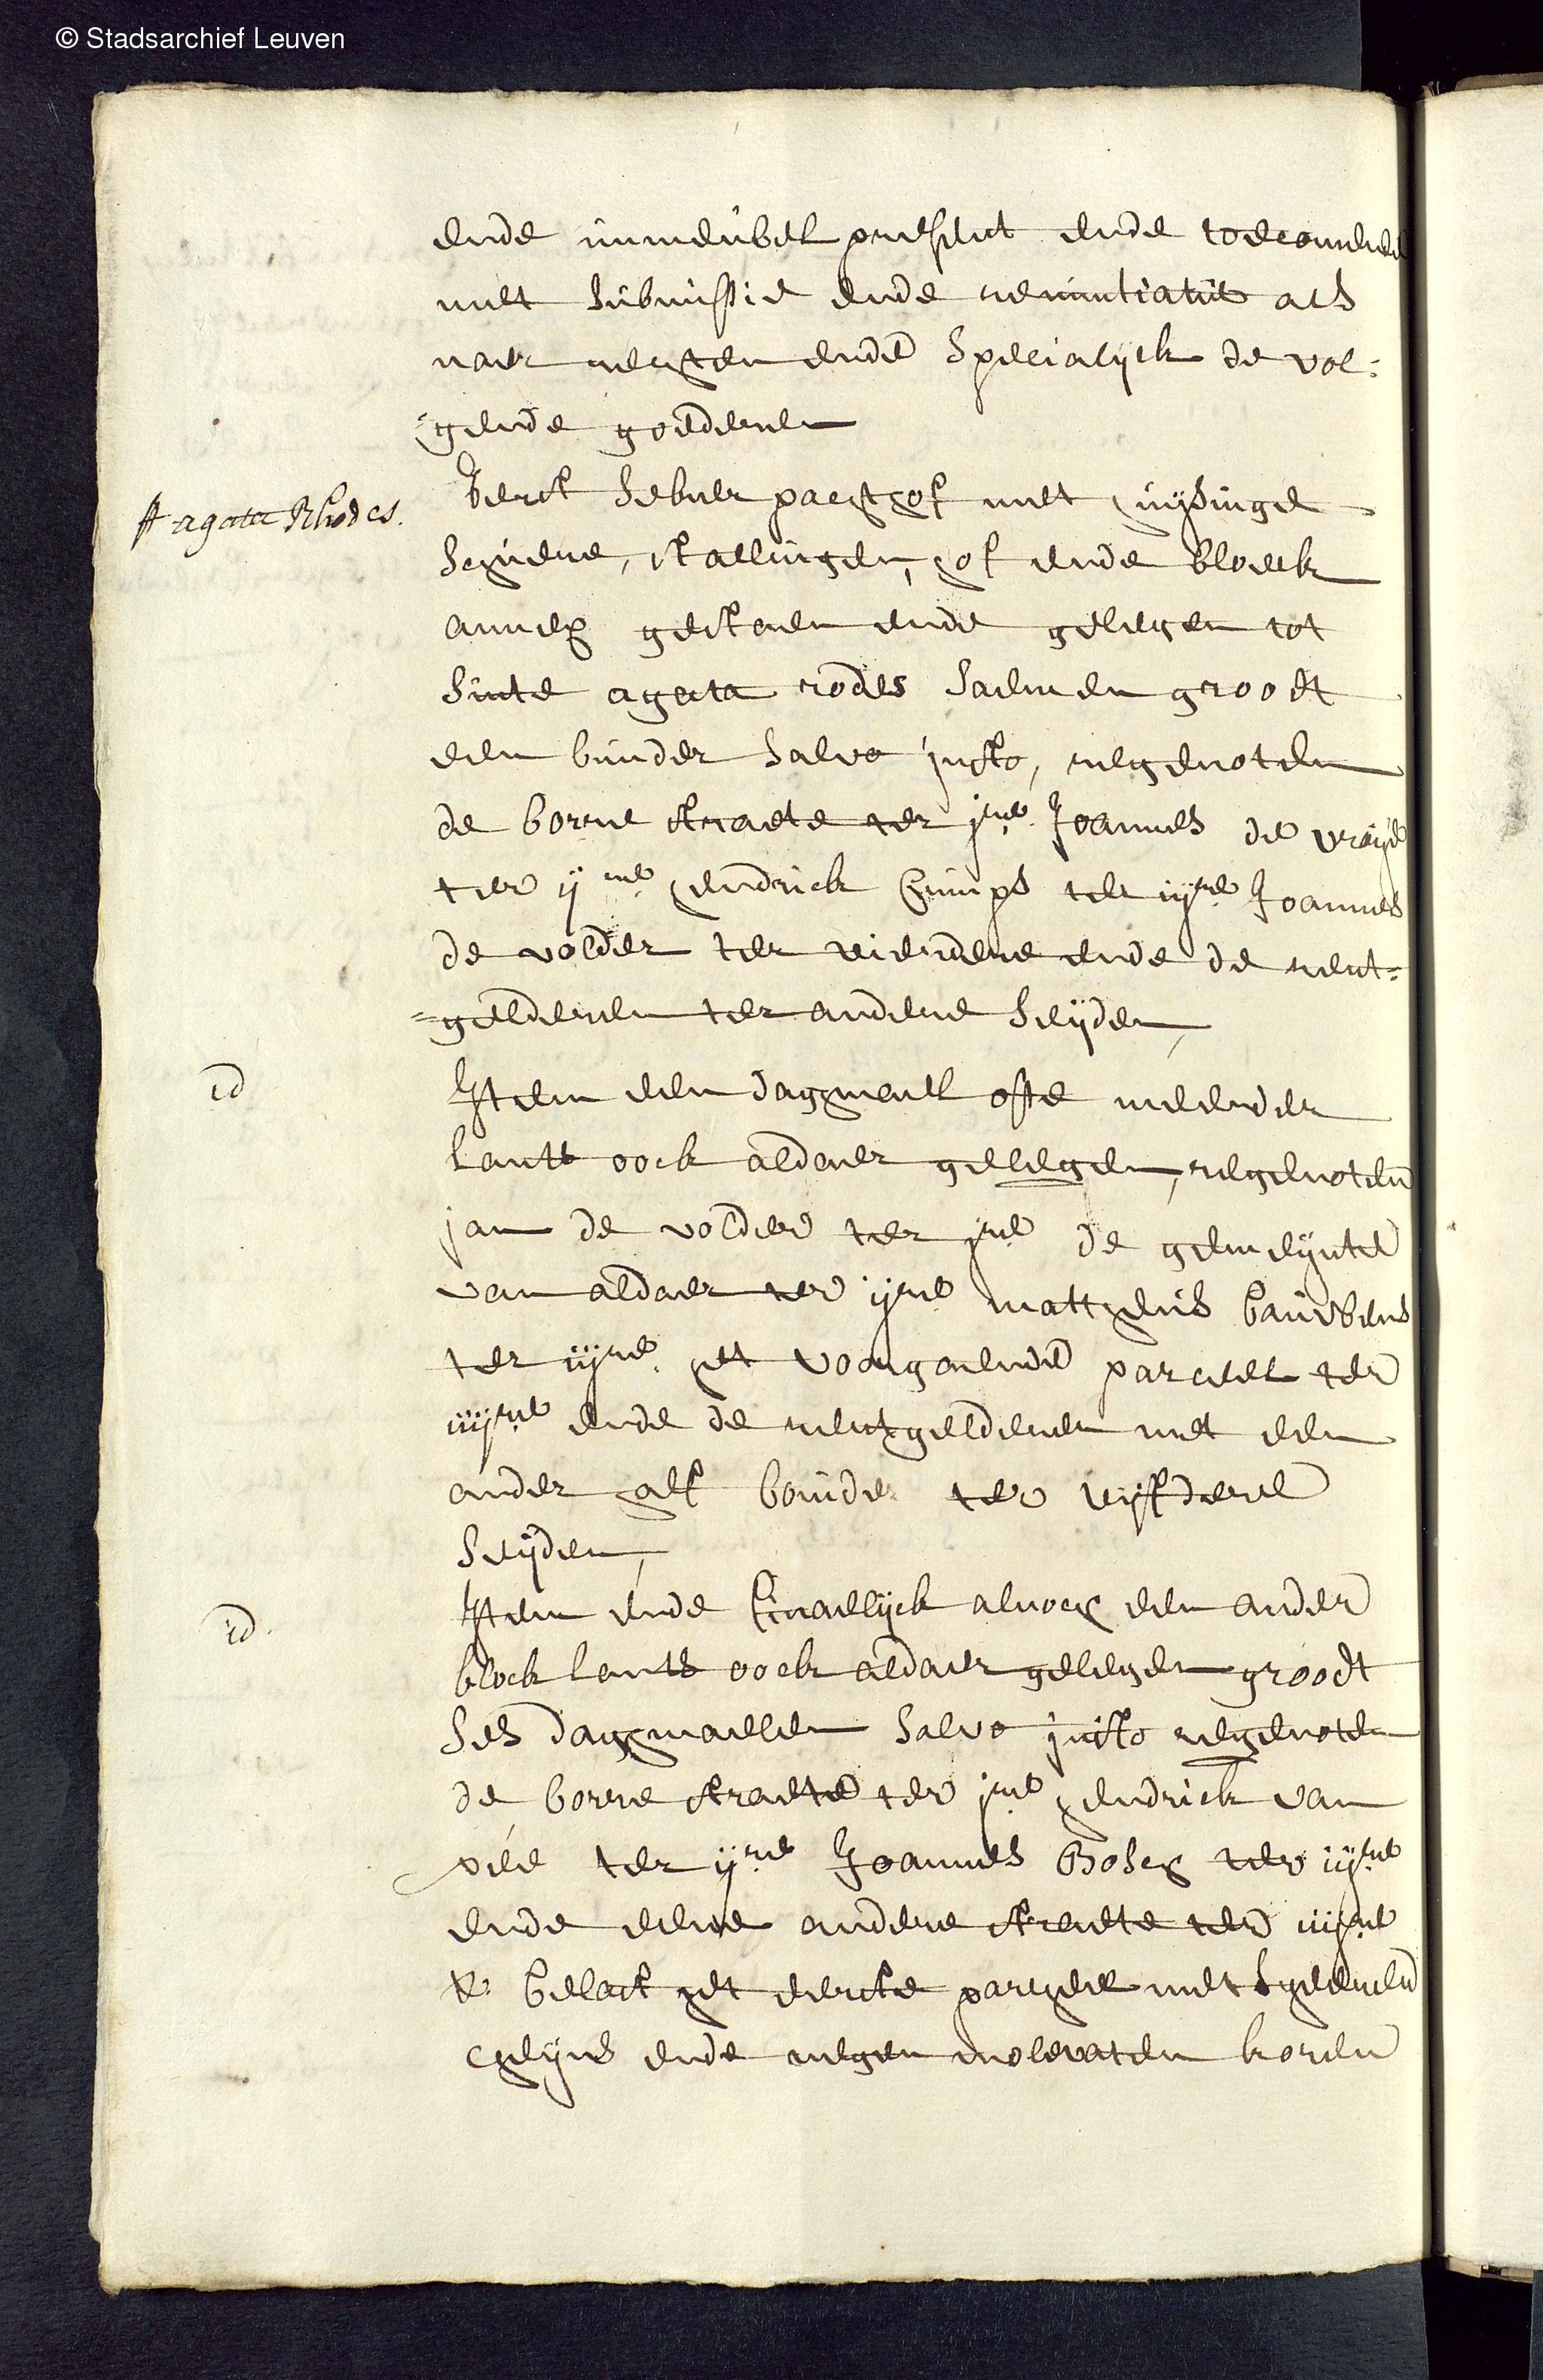 © Stadsarchief Leuven
ende immeubel present ende toecomende
met submissie ende renuntiatie als
naer rechten ende specialyck de vol:
=gende goederen
St agata Rhodes.
Ierst sekere pachthof met huysinge
schuere, stallingen, hof ende bloeck
annex gestaen ende gelegen tot
Sinte agata rodes saemen groodt
een bunder salvo justo, regenoten
de borre straete ter jre Joannes de vroye
ter ijre hendrick Cuups ter iijre Joannes
de volder ter vierdere ende de rent=
=gelderen ter andere seyden,
id
Item een dagmael ofte meerder
lants oock aldaer gelegen, regenoten
jan de volder ter jre de gemeynte
van aldaer ter ijre mattheus bauwens
ter iijre het voorgaende parceel ter
iiijre ende de rentgelderen met een
ander half bonder ter vyfdere
seyden,
id.
Item ende finaelyck alnoch een ander
block lants oock aldaer gelegen groodt
ses daghmaelen salvo justo regenoten
de borre straete ter jre hendrick van
pée ter ijre Joannes Bosch ter iijre
ende eene andere straete ter iiijre
belast het eerste parcheel met sheeren
chyns ende negen molevaten koren